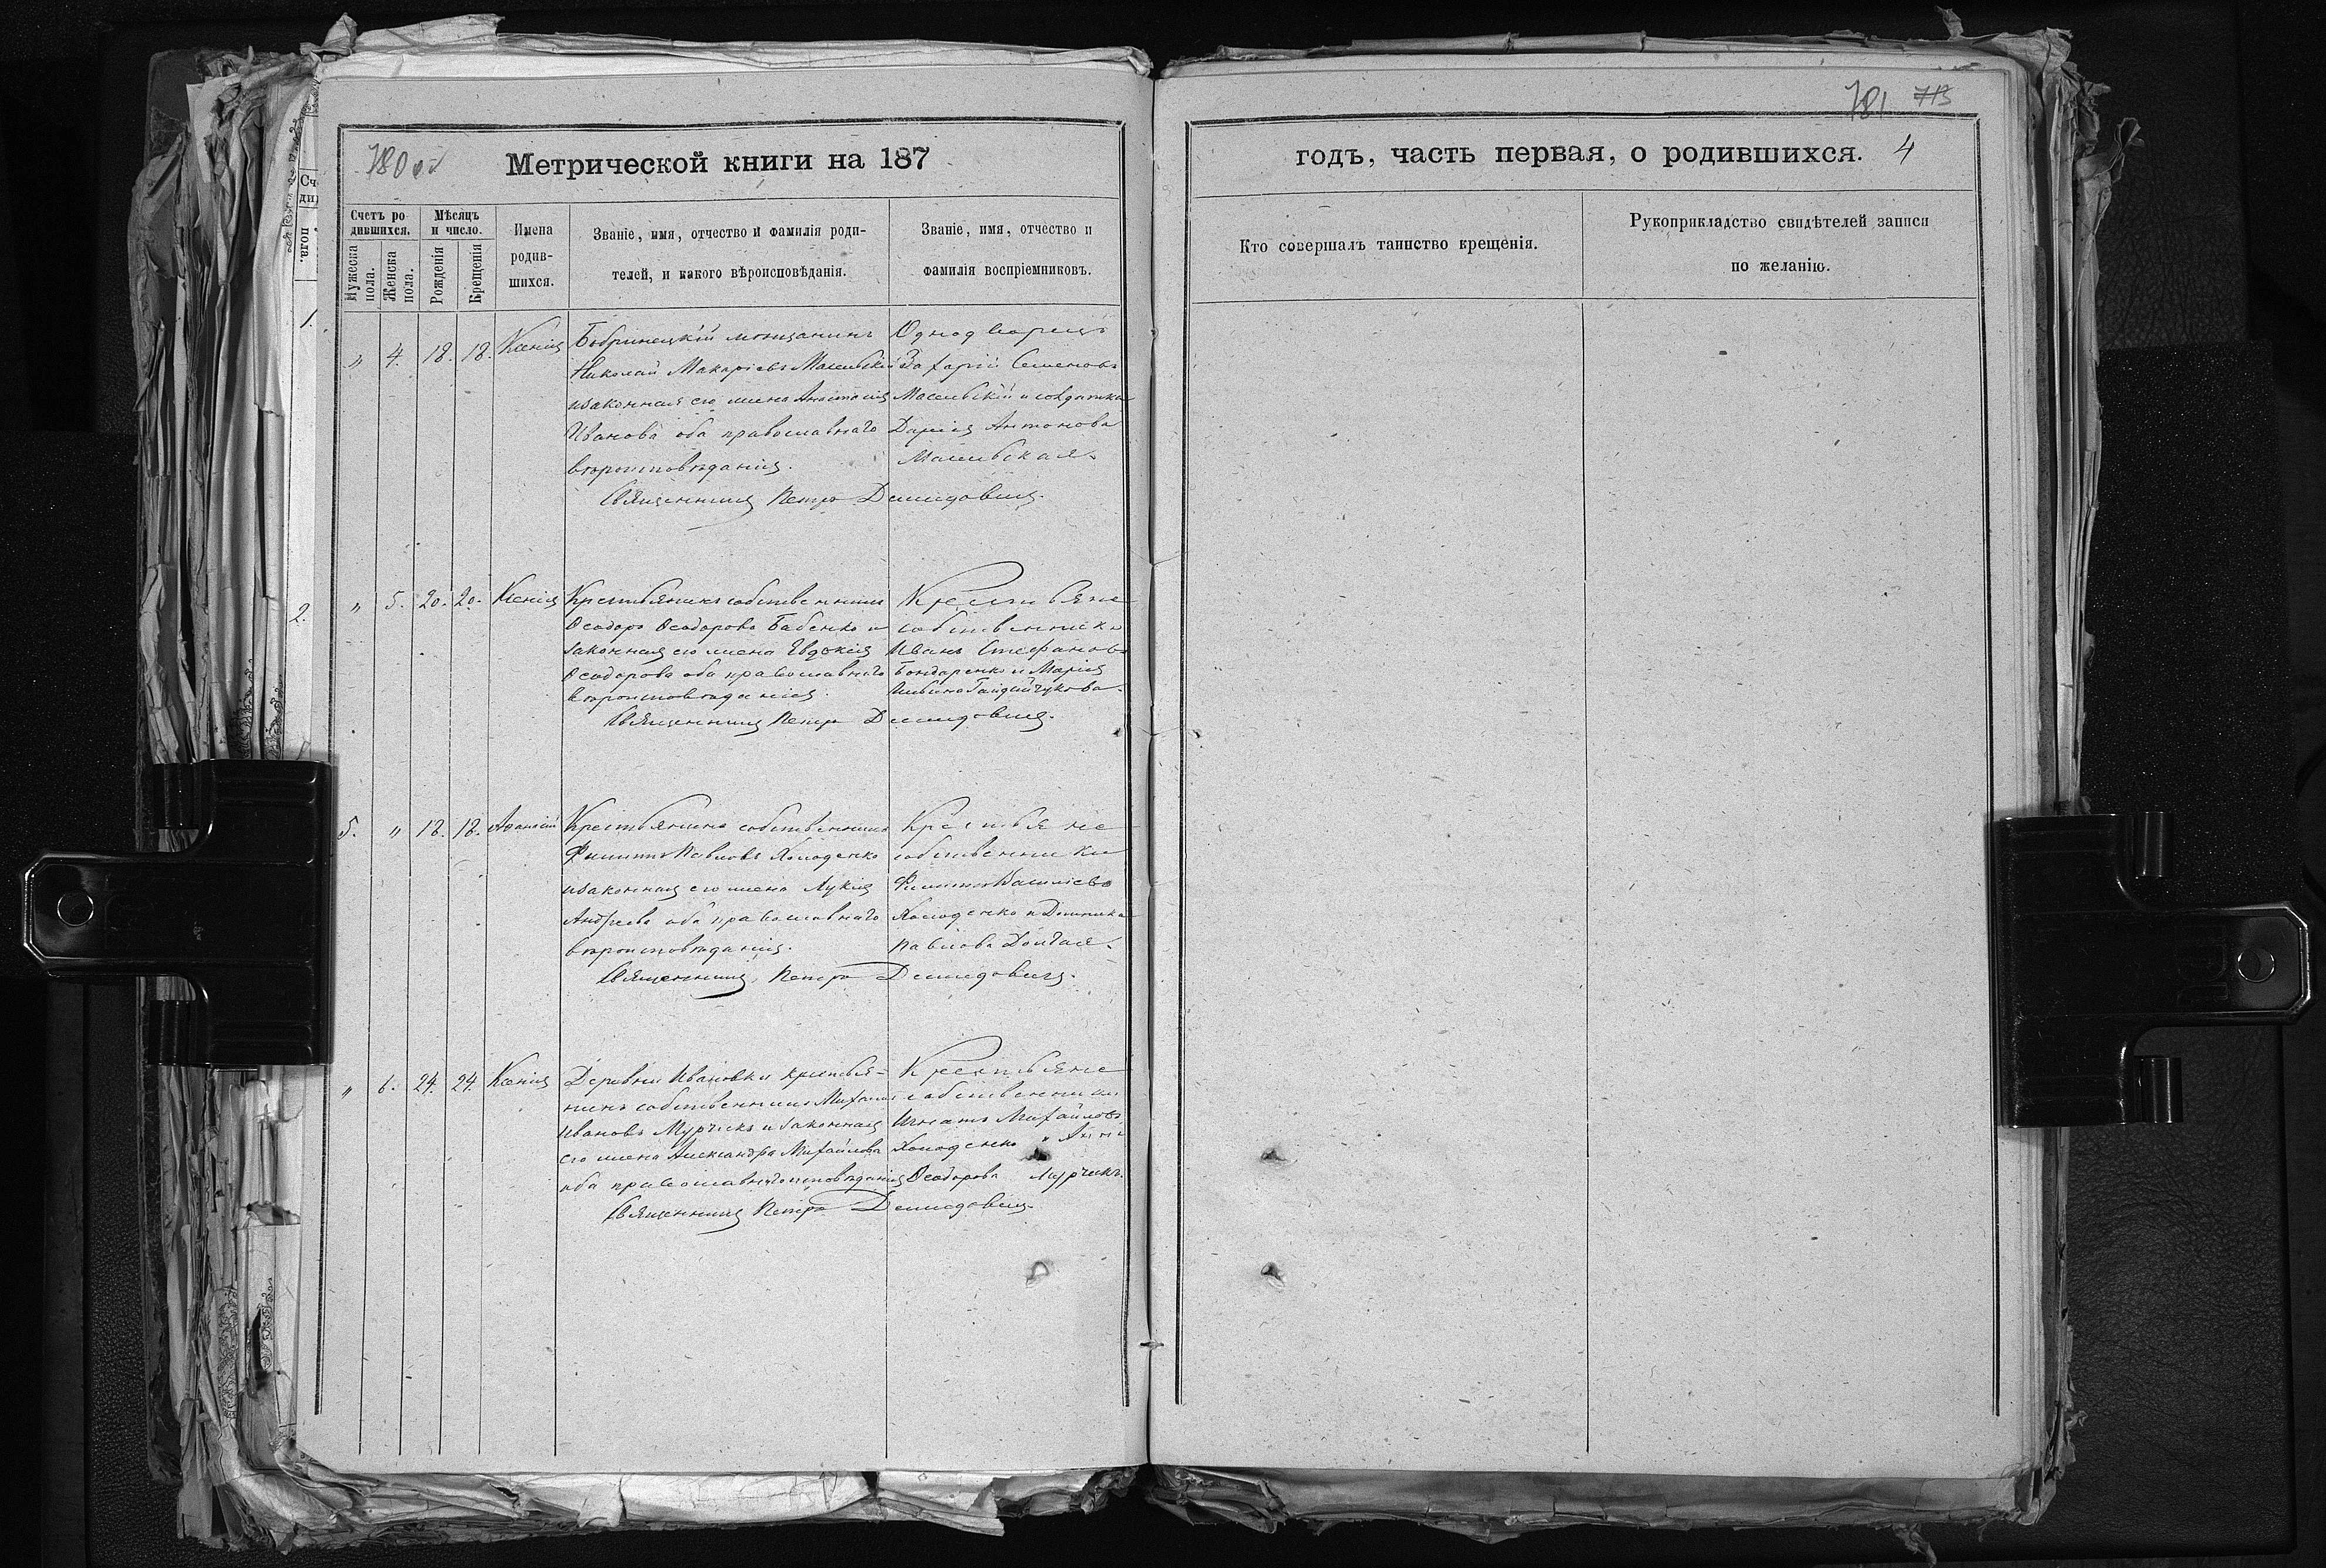 780 об
Метрической книги на 187
Счетъ ро-
дившихся.
Мужеска пола.
Женска пола.
Мѣсяцъ
и число.
Рожденія
Крещенія
Имена
родив-
шихся.
Званіе, имя, отчество и фамилія роди-
телей, и какого вѣроисповѣданія.
Званіе, имя, отчество и
фамилія воспріемниковъ.
" 4. 18. 18. Ксенія
Бобринецкій мѣщанинъ
Николай Макаріевъ
и законная его жена Анастасія
Иванова оба православнаго
вѣроисповѣданія.
Однодворецъ
Захарій Семеновъ
и солдатка
Дарія Антонова
Священникъ Петръ Демидовичъ.
" 5. 20. 20. Ксенія
Крестьянинъ собственникъ
Ѳеодоръ Ѳеодоровъ Бабенко и
законная его жена Евдокія
Ѳеодорова оба православнаго
вѣроисповѣданія.
Крестьяне
собственники
Иванъ Стефановъ
Бондаренко и Марія
Священникъ Петръ Демидовичъ.
5. " 18. 18. Аѳанасій
Крестьянинъ собственникъ
Филиппъ Павловъ Холоденко
и законная его жена Лукія
Андреева оба православнаго
вѣроисповѣданія.
Крестьяне
собственники
Филиппъ Василіевъ
Холоденко и Домника
Павлова Долгая.
Священникъ Петръ Демидовичъ.
" 6. 24. 24. Ксенія
Деревни Ивановки крестья-
нинъ собственникъ Михаилъ
Ивановъ Мурчикъ и законная
его жена Александра Михайлова
оба православнаго исповѣданія
Крестьяне
собственники
Игнатъ Михайловъ
Холоденко и Анна
Ѳеодорова Мурчикъ.
Священникъ Петръ Демидовичъ.
1.
2.
781 713
годъ, часть первая, о родившихся. 4
Кто совершалъ таинство крещенія.
Рукоприкладство свидѣтелей записи
по желанію.